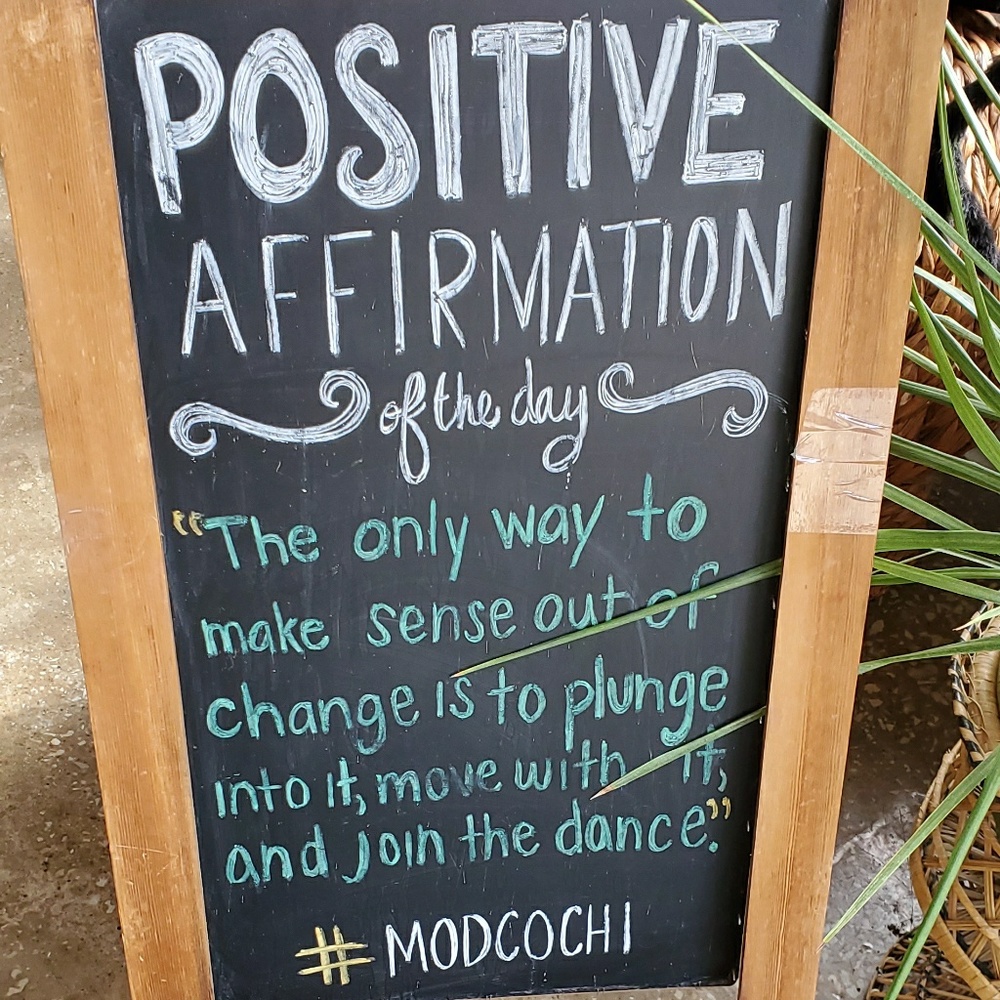 POSITIVE
AFFIRMATION
of the day
"The only way to
make sense out of
change is to plunge
into it, move with it,
and join the dance."
#MODCOCHI